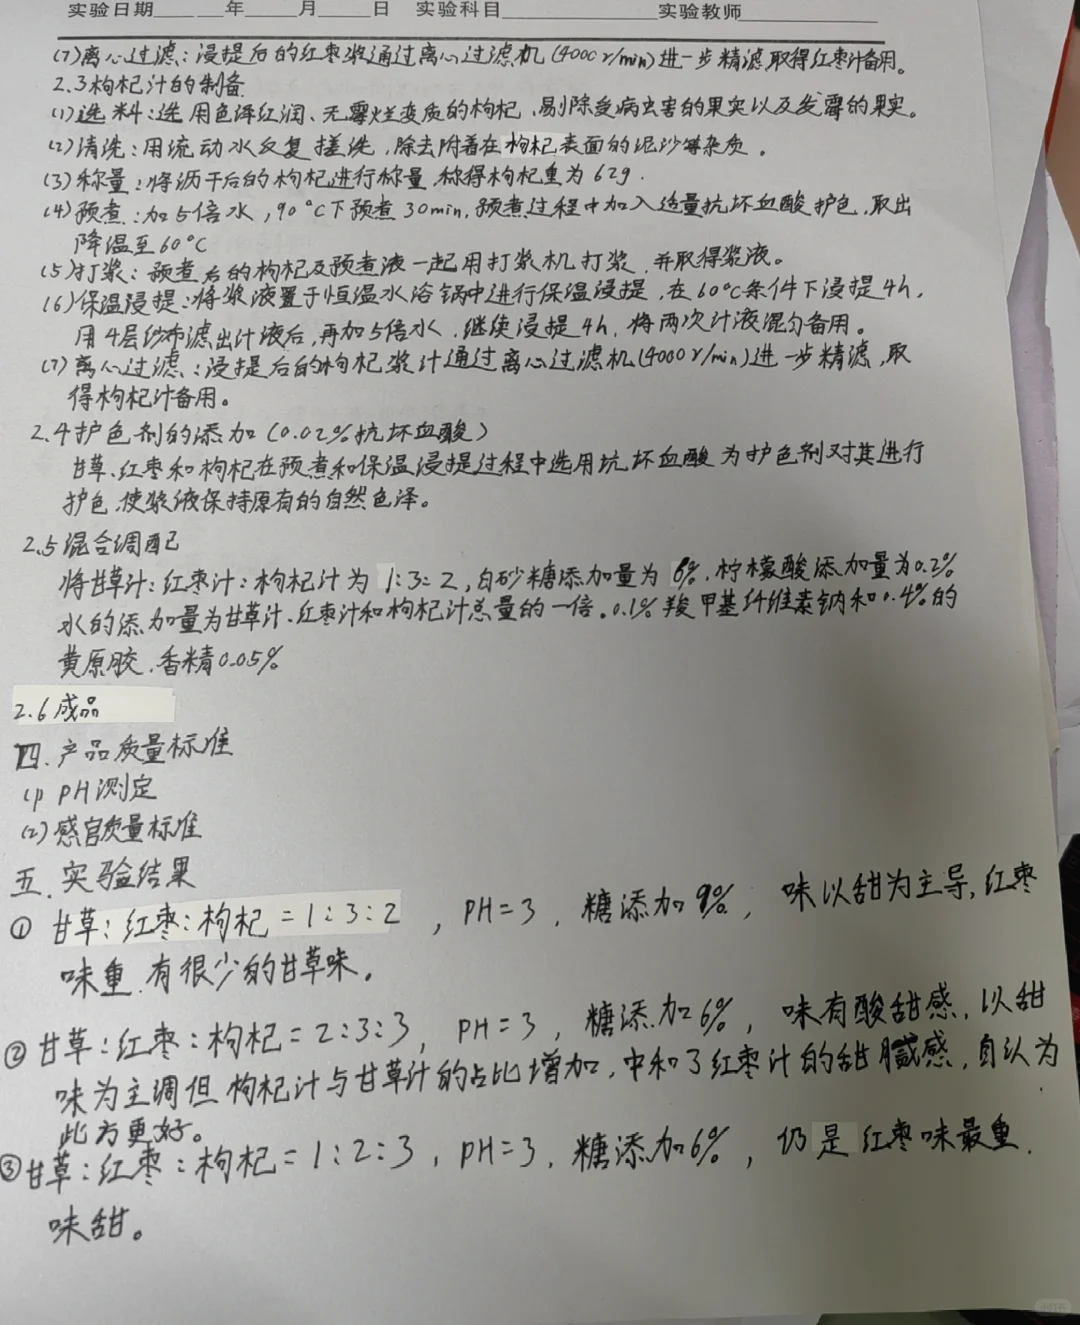 实验日期______年_____月_____日 实验科目______________实验教师____________
(7)离心过滤:浸提后的红枣浆通过离心过滤机(4000r/min)进一步精滤,取得红枣汁备用。
2.3枸杞汁的制备
(1)选料:选用色泽红润、无霉烂变质的枸杞,剔除受病虫害的果实以及发霉的果实。
(2)清洗:用流动水反复搓洗,除去附着在枸杞表面的泥沙等杂质。
(3)称量:将沥干后的枸杞进行称量,称得枸杞重为62g.
(4)预煮:加5倍水,90°C下预煮30min,预煮过程中加入适量抗坏血酸护色,取出
降温至60°C
(5)打浆:预煮后的枸杞及预煮液一起用打浆机打浆,并取得浆液。
(6)保温浸提:将浆液置于恒温水浴锅中进行保温浸提,在60°C条件下浸提4h,
用4层纱布滤出汁液后,再加5倍水,继续浸提4h,将两次汁液混匀备用。
(7)离心过滤:浸提后的枸杞浆汁通过离心过滤机(4000r/min)进一步精滤,取
得枸杞汁备用。
2.4护色剂的添加(0.02%抗坏血酸)
甘草、红枣和枸杞在预煮和保温浸提过程中选用抗坏血酸为护色剂对其进行
护色,使浆液保持原有的自然色泽。
2.5混合调配
将甘草汁:红枣汁:枸杞汁为1:3:2,白砂糖添加量为6%,柠檬酸添加量为0.2%
水的添加量为甘草汁、红枣汁和枸杞汁总量的一倍。0.1%羧甲基纤维素钠和0.4%的
黄原胶,香精0.05%
2.6成品
四.产品质量标准
(1)PH测定
(2)感官质量标准
五.实验结果
①甘草:红枣:枸杞=1:3:2,PH=3,糖添加9%,味以甜为主导,红枣
味重,有很少的甘草味。
②甘草:红枣:枸杞=2:3:3,PH=3,糖添加6%,味有酸甜感,以甜
味为主调但枸杞汁与甘草汁的占比增加,中和了红枣汁的甜腻感,自认为
此方更好。
③甘草:红枣:枸杞=1:2:3,PH=3,糖添加6%,仍是红枣味最重,
味甜。